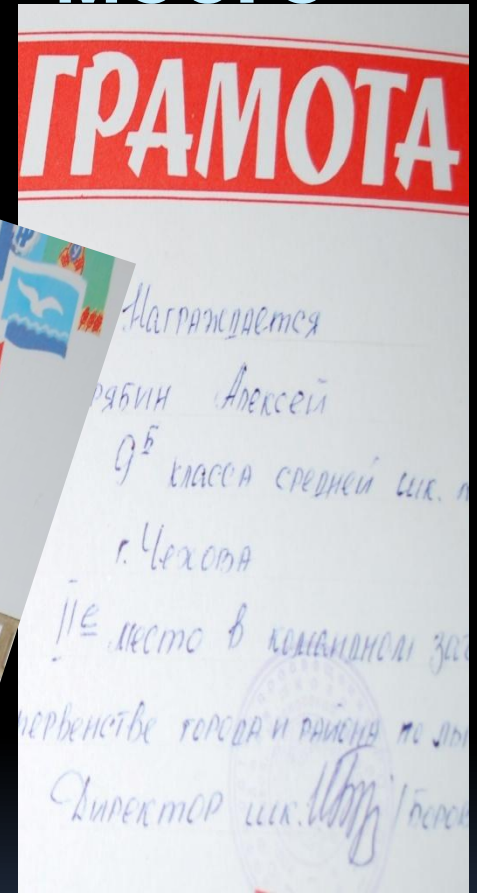 ГРАМОТА
Награждается
Алексей
9 Б класса средней шк.
г. Чехова
IIе место в командном
первенстве города и района по
Директор шк.